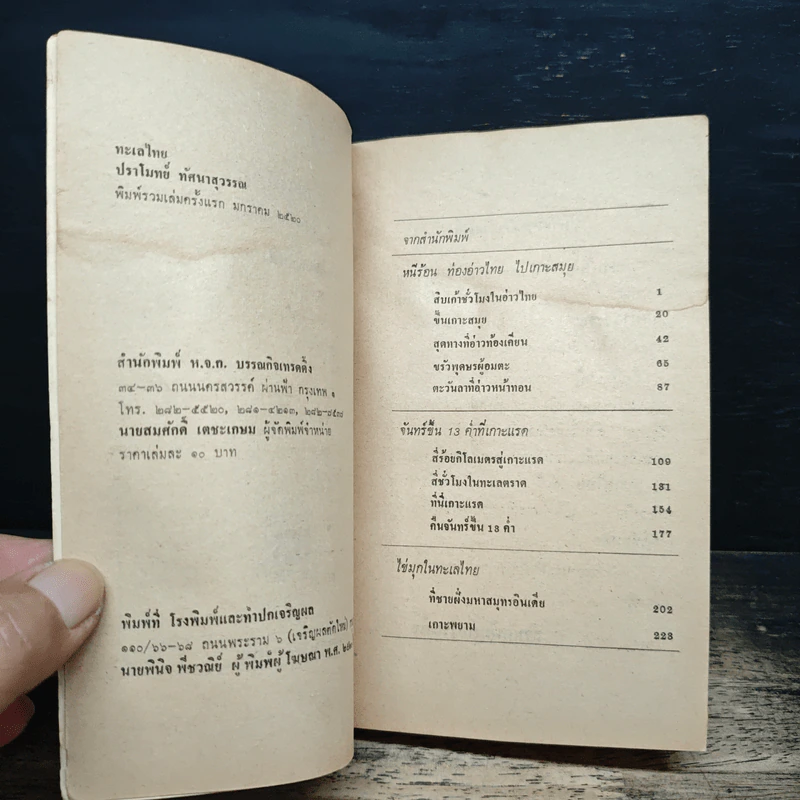 ทะเลไทย
ปราโมทย์ ทัศนาสุวรรณ
พิมพ์รวมเล่มครั้งแรก มกราคม ๒๕๒๐
สำนักพิมพ์ ห.จ.ก. บรรณกิจเทรดดิ้ง
๓๔–๓๖ ถนนนครสวรรค์ ผ่านฟ้า กรุงเทพ ๑
โทร. ๒๘๒–๕๕๒๐, ๒๘๑–๔๒๑๓, ๒๘๒–๗๕๓๗
นายสมศักดิ์ เตชะเกษม ผู้จัดพิมพ์จำหน่าย
ราคาเล่มละ ๑๐ บาท
พิมพ์ที่ โรงพิมพ์และทำปกเจริญผล
๑๑๐/๖๖–๖๘ ถนนพระราม ๖ (เจริญผลตึกใหม่)
นายพินิจ พืชวณิย์ ผู้พิมพ์ผู้โฆษณา พ.ศ.
จากสำนักพิมพ์
หนีร้อน ท่องอ่าวไทย ไปเกาะสมุย
สิบเก้าชั่วโมงในอ่าวไทย 1
ขึ้นเกาะสมุย 20
สุดทางที่อ่าวท้องเคียน 42
ขรัวพุดษรผู้อมตะ 65
ตะวันลาที่อ่าวหน้าทอน 87
จันทร์ขึ้น 13 ค่ำที่เกาะแรด
สี่ร้อยกิโลเมตรสู่เกาะแรด 109
สี่ชั่วโมงในทะเลตราด 131
ที่นี่เกาะแรด 154
คืนจันทร์ขึ้น 13 ค่ำ 177
ไข่มุกในทะเลไทย
ที่ชายฝั่งมหาสมุทรอินเดีย 202
เกาะพยาม 223